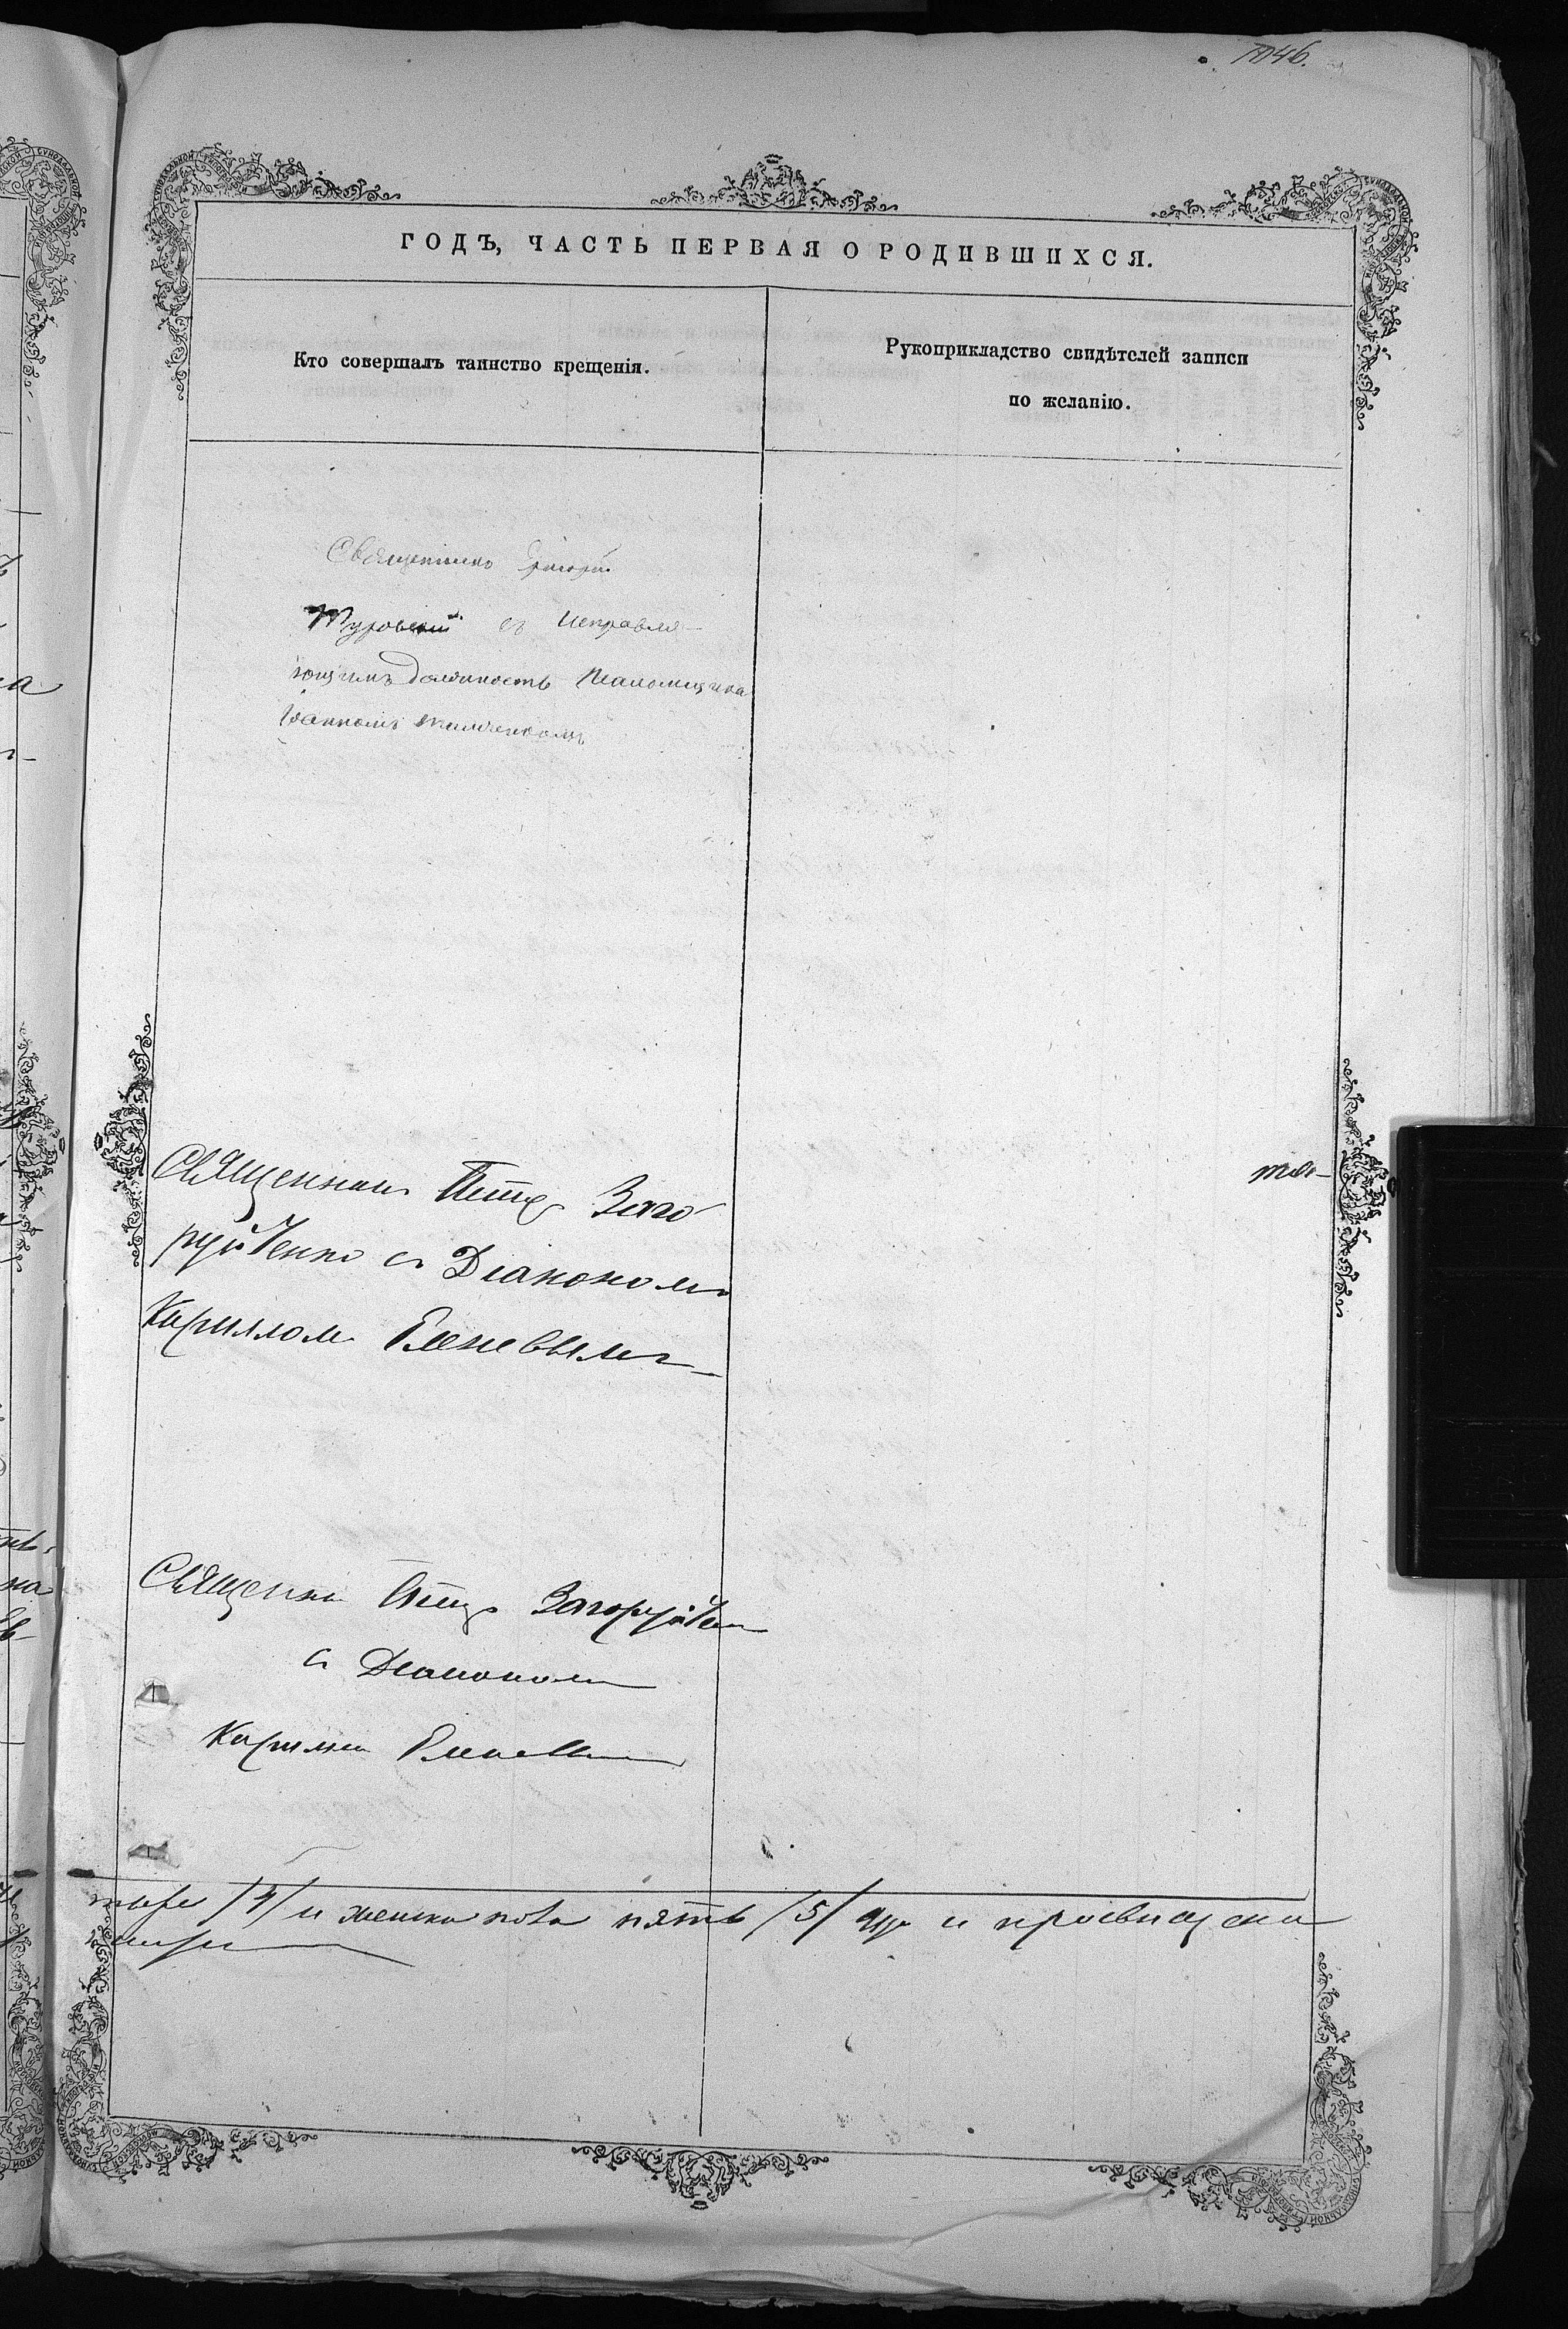 1046.
ГОДЪ, ЧАСТЬ ПЕРВАЯ О РОДИВШИХСЯ.
Кто совершалъ таинство крещенія.
Рукоприкладство свидѣтелей записи
по желанію.
Священникъ Григорій
Туровскій съ Исправля-
ющимъ должность Псаломщика
Іоанномъ
Священникъ Петръ Заго-
руйченко съ Діакономъ
Кирилломъ Еленевымъ
Священникъ Петръ Загоруйченко
съ Діакономъ
Кирилломъ Еленевымъ
тыре /4/ и женска пола пять /5/ и просвищена